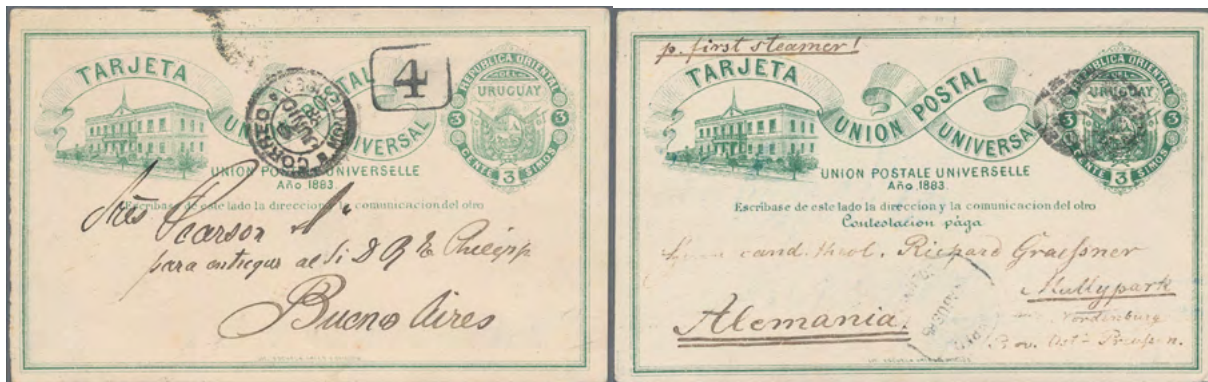 TARJETA
UNION POSTAL UNIVERSAL
REPUBLICA ORIENTAL
DEL
URUGUAY
3 3
CENTE 3 SIMOS
4
CORREO
JUNIO
UNION POSTALE UNIVERSELLE
Año 1883.
Escríbase de este lado la direccion y la comunicacion del otro
Pearson
para entregar al
Buenos Aires
p. first steamer!
TARJETA
UNION POSTAL UNIVERSAL
REPUBLICA ORIENTAL
DEL
URUGUAY
3 3
CENTE 3 SIMOS
UNION POSTALE UNIVERSELLE
Año 1883.
Escríbase de este lado la direccion y la comunicacion del otro
Contestacion pága
cand. theol. Richard Graessner
Mullypark
Nordenburg
Alemania.
Prov. Ost-Preussen.